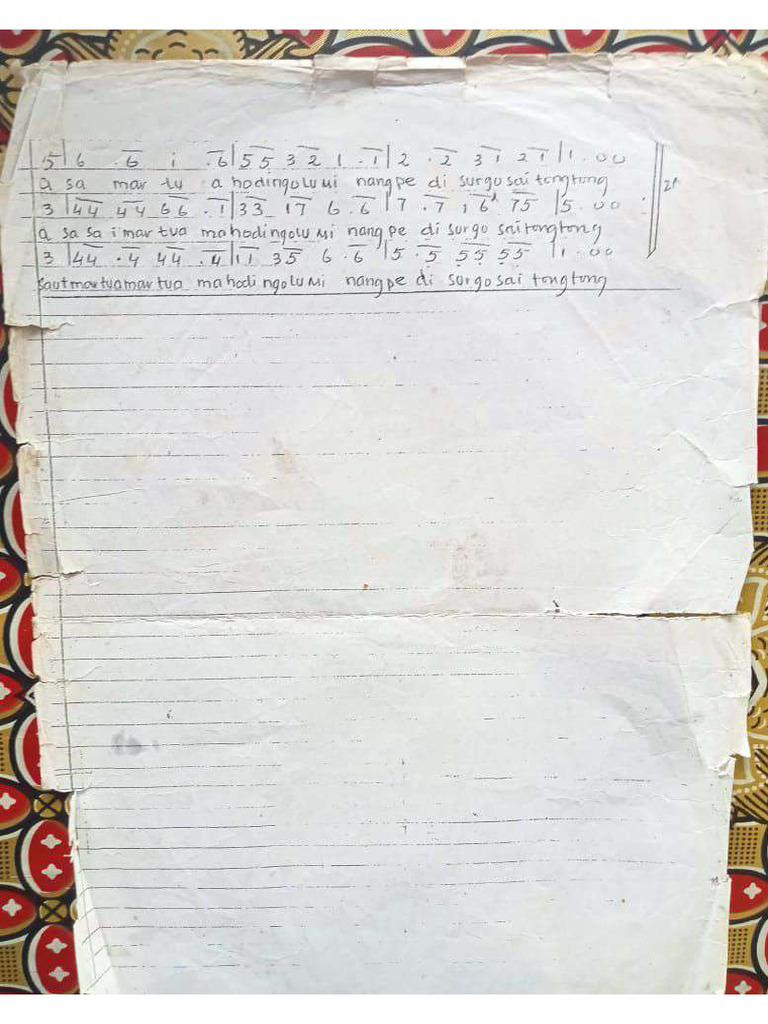 5|6 .6 1 .6|55 32 1 .1|2 .2 31 21|1.00
a sa mar tu a hodingolumi nangpe di surgo sai tongtong
3|44 44 66 .1|33 17 6 .6|7 .7 16 75|5.00
a sa sa i mar tua ma hodingolumi nang pe di surgo sai tongtong
3|44 .4 44 .4|11 35 6 .6|5 .5 55 55|1.00
saut martua mar tua ma hodi ngolumi nangpe di surgo sai tongtong